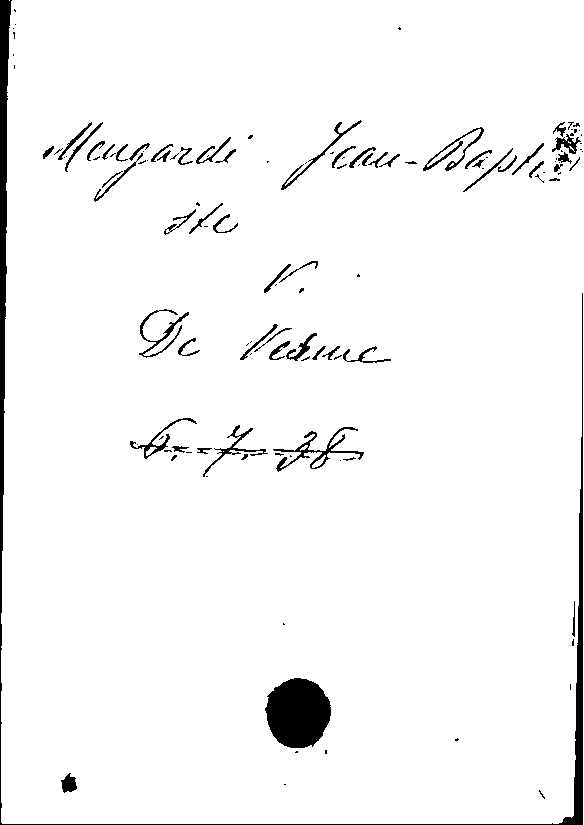 Mengardi Jean-Bapti
ste
V.
De Vesme
S. 7. 38